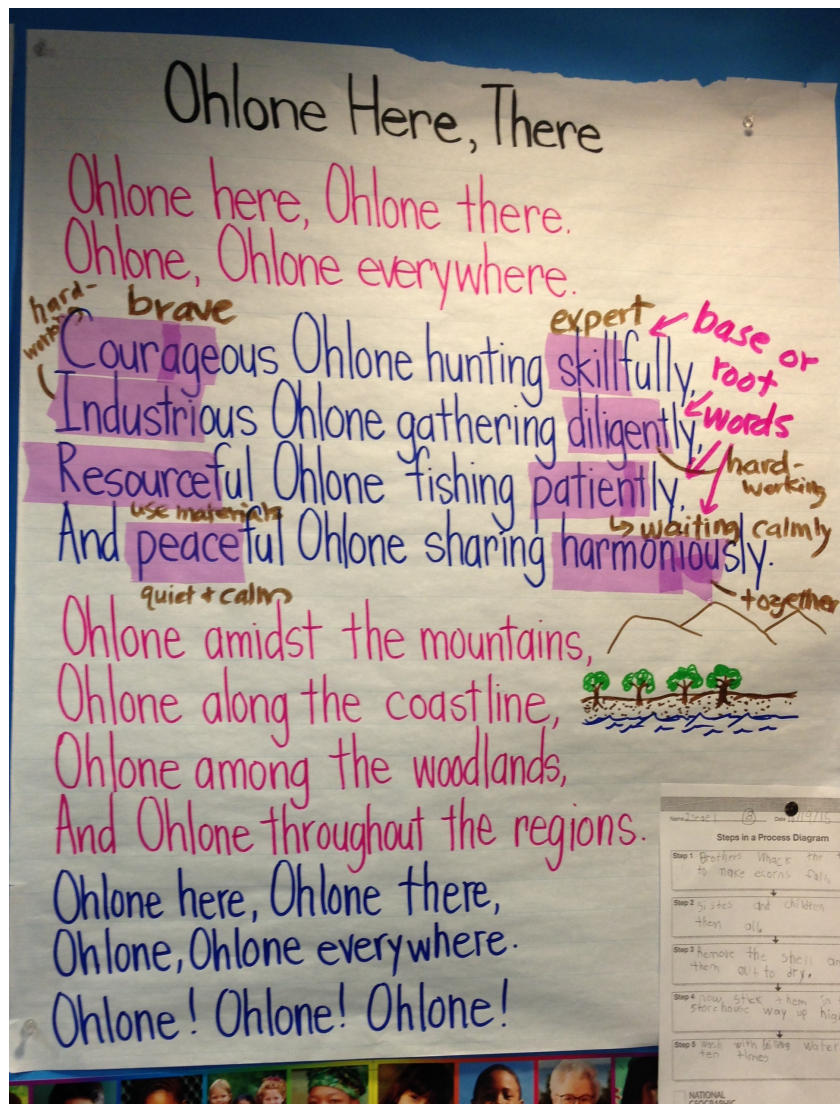 Ohlone Here, There
Ohlone here, Ohlone there.
Ohlone, Ohlone everywhere.
hard-
working
brave
expert
base or
root
words
Courageous Ohlone hunting skillfully,
Industrious Ohlone gathering diligently,
hard-
working
Resourceful Ohlone fishing patiently,
use materials
waiting calmly
And peaceful Ohlone sharing harmoniously.
quiet + calm
together
Ohlone amidst the mountains,
Ohlone along the coastline,
Ohlone among the woodlands,
And Ohlone throughout the regions.
Ohlone here, Ohlone there,
Ohlone, Ohlone everywhere.
Ohlone! Ohlone! Ohlone!
Name Israel 8 Date
Steps in a Process Diagram
Step 1 Brothers whack the
to make ecorns falls
Step 2 Sistes and children
them all
Step 3 Remove the shell an
them out to dry.
Step 4 now stick them in
storehouse way up high
Step 5 wash with boiling water
ten times
NATIONAL
GEOGRAPHIC